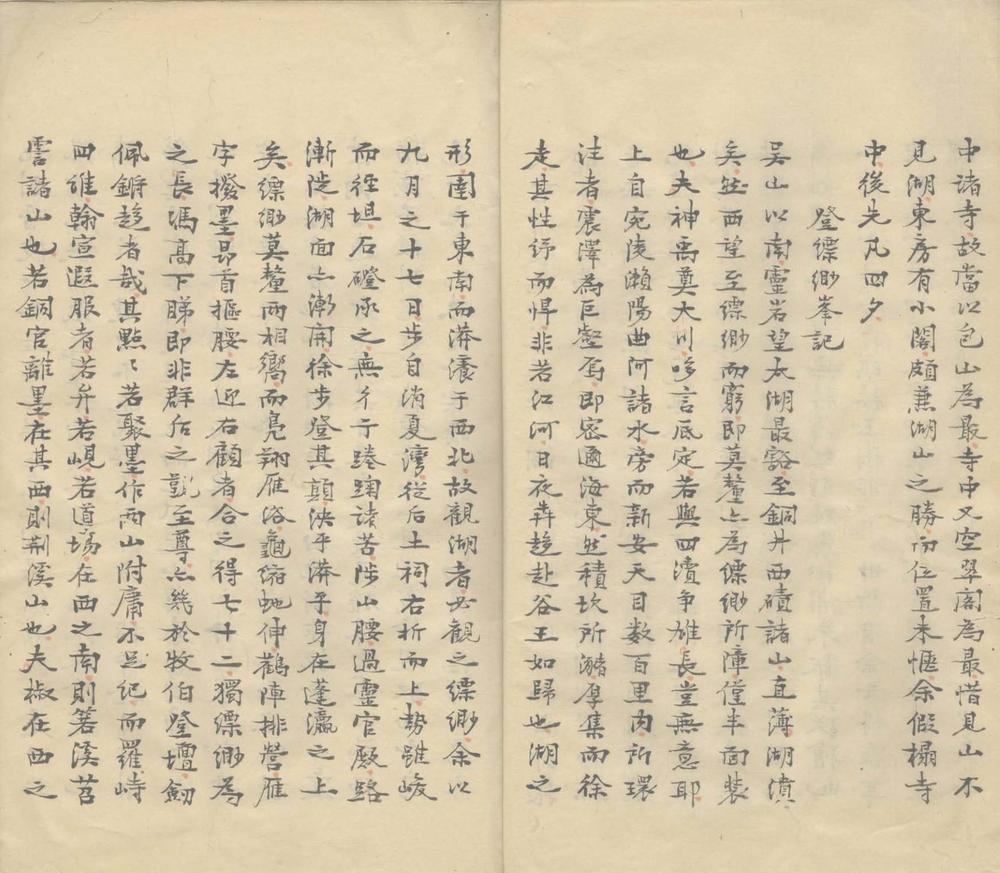 中諸寺故當以包山為最寺中又空翠閣為最惜見山不
見湖東房有小閣頗兼湖山之勝而位置未愜余假榻寺
中後先凡四夕
登縹緲峯記
吳山以南靈岩望太湖最豁至銅井西磧諸山直薄湖濆
矣然西望至縹緲而窮即莫釐亦為縹緲所障僅半面裝
也夫神禹奠大川哆言底定若與四瀆争雄長豈無意耶
上自宛陵瀨陽曲河諸水旁而新安天目数百里内所環
注者震澤為巨壑焉即密邇海東然積坎所瀦厚集而徐
走其性紓而悍非若江河日夜犇趍赴谷王如歸也湖之
形圉于東南而漭瀁于西北故觀湖者必觀之縹緲余以
九月之十七日步自消夏灣從后土祠右折而上勢雖峻
而徑坦石磴承之無彳亍踡跼諸苦陟山腰過靈官殿路
漸陡湖面亦漸開徐步登其顛泱乎漭乎身在蓬瀛之上
矣縹緲莫釐兩相嚮而鳧翔雁浴龜縮虵伸鸛陣排營雁
字撥墨昂首摳腰左迎右顧者合之得七十二獨縹緲為
之長馮高下睇即非群后之覲至尊亦幾於牧伯登壇劒
佩鏘趍者哉其點〻若聚墨作兩山附庸不足纪而羅峙
四維翰宣遐服者若弁若峴若道塲在西之南則箬溪苕
霅諸山也若銅官離墨在其西則荆溪山也夫椒在西之